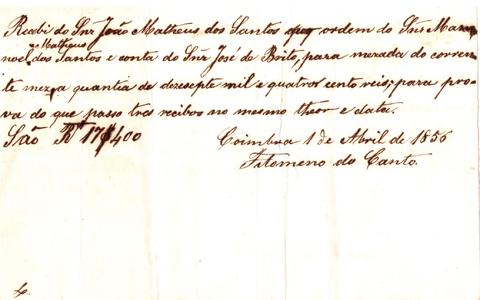 Recebi do Snr João Matheus dos Santos por ordem do Snr Ma
Matheus
noel dos Santos e conta do Snr José de Brito, para mezada do corren
te mez, a quantia de dezesepte mil e quatros cento reis; para pro
va do que passo tres recibos no mesmo theor e data.
São Rs 17$400 Coimbra 1 de Abril de 1856
Filomeno do Canto.